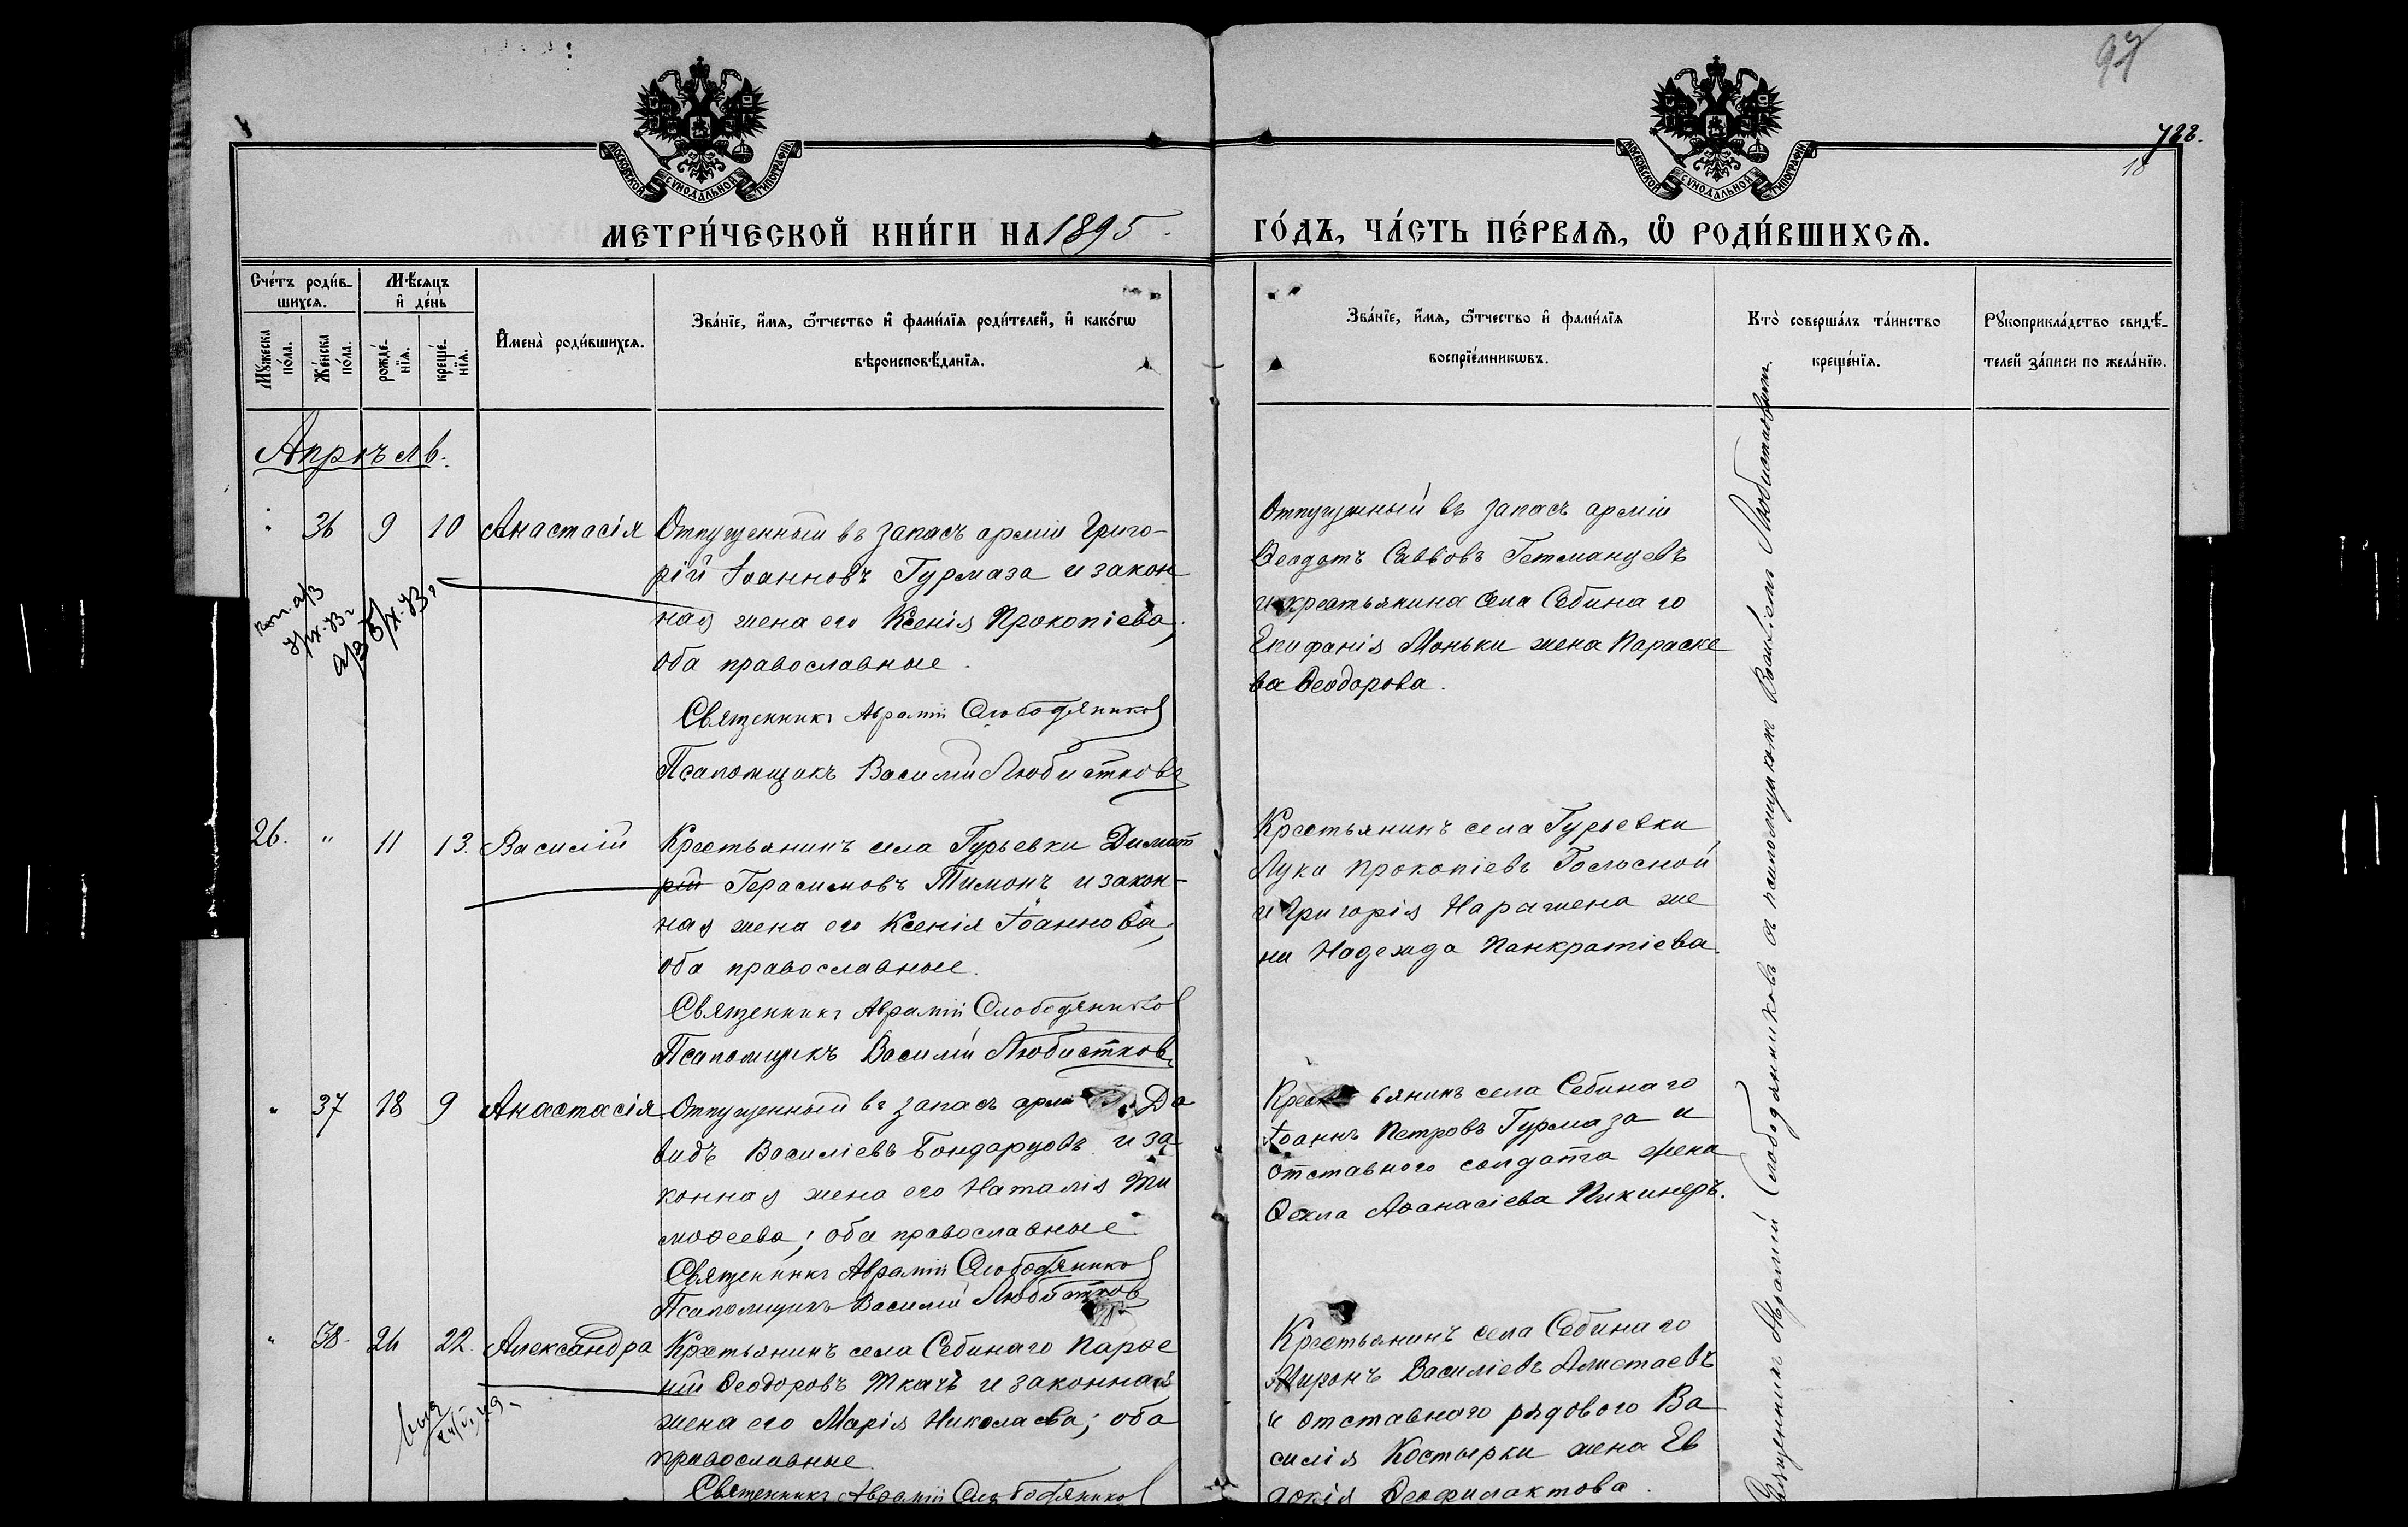 97
722.
18
МОСКОВСКОЙ СѴНОДАЛЬНОЙ ТИПОГРАФІИ
МОСКОВСКОЙ СѴНОДАЛЬНОЙ ТИПОГРАФІИ
МЕТРИ́ЧЕСКОЙ КНИ́ГИ НА 1895
ГО́ДЪ, ЧА́СТЬ ПЕ́РВАѦ, Ѡ РОДИ́ВШИХСѦ.
Сче́тъ роди́в-
шихсѧ.
Мѣ́сѧцъ
и де́нь
Мꙋ́жеска по́ла.
Же́нска по́ла.
рожде́-
нїѧ.
креще́-
нїѧ.
Имена̀ роди́вшихсѧ.
Зва́нїе, и́мѧ, ѻ́тчество и фами́лїѧ роди́телей, и како́гѡ
вѣроисповѣ́данїѧ.
Зва́нїе, и́мѧ, ѻ́тчество и фами́лїѧ
воспрїе́мникѡвъ.
Кто̀ соверша́лъ та́инство
креще́нїѧ.
Рꙋкоприкла́дство свидѣ́-
телей за́писи по жела́нїю.
Апрѣль.
" 36 9 10 Анастасія
Отпущенный въ запасъ арміи Григо-
рій Іоанновъ Гурмаза и закон
ная жена его Ксенія Прокопіева,
оба православные.
Священникъ Аврамій Слободяников
Псаломщикъ Василій Любистковъ
Отпущенный въ запасъ арміи
Ѳеодотъ Саввовъ Гетманцевъ
и крестьянина села Себинаго
Епифанія Моньки жена Параске
ва Ѳеодорова.
26. " 11 13. Василій
Крестьянинъ села Гурьевки Димит
рій Герасимовъ Тимонъ и закон-
ная жена его Ксенія Іоаннова,
оба православные.
Священникъ Аврамій Слободянико
Псаломщикъ Василій Любистков
Крестьянинъ села Гурьевки
Лука Прокопіевъ Голосной
и Григорія Нарамена же
на Надежда Панкратіева.
" 37 18 9 Анастасія
Отпущенный въ запасъ арміи Да
видъ Василіевъ Бондарцовъ и за
конная жена его Наталія Ти
моѳеева; оба православные
Священникъ Аврамій Слободянико
Псаломщикъ Василій Любистков
Крестьянинъ села Себинаго
Іоаннъ Петровъ Гурмаза и
отставного солдата жена
Ѳекла Аѳанасіева Пикинеръ.
" 38. 21 22. Александра
Крестьянинъ села Себинаго Парѳе
ній Ѳеодоровъ Ткачъ и законная
жена его Марія Николаева; оба
православные.
Священникъ Аврамій Слободяников
Крестьянинъ села Себинаго
Миронъ Василіевъ Алистаевъ
и отставного рядового Ва
силія Костырки жена Ев
докія Ѳеофилактова.
Священникъ Аврамій Слободяниковъ съ псаломщикомъ Василіемъ Любистковымъ